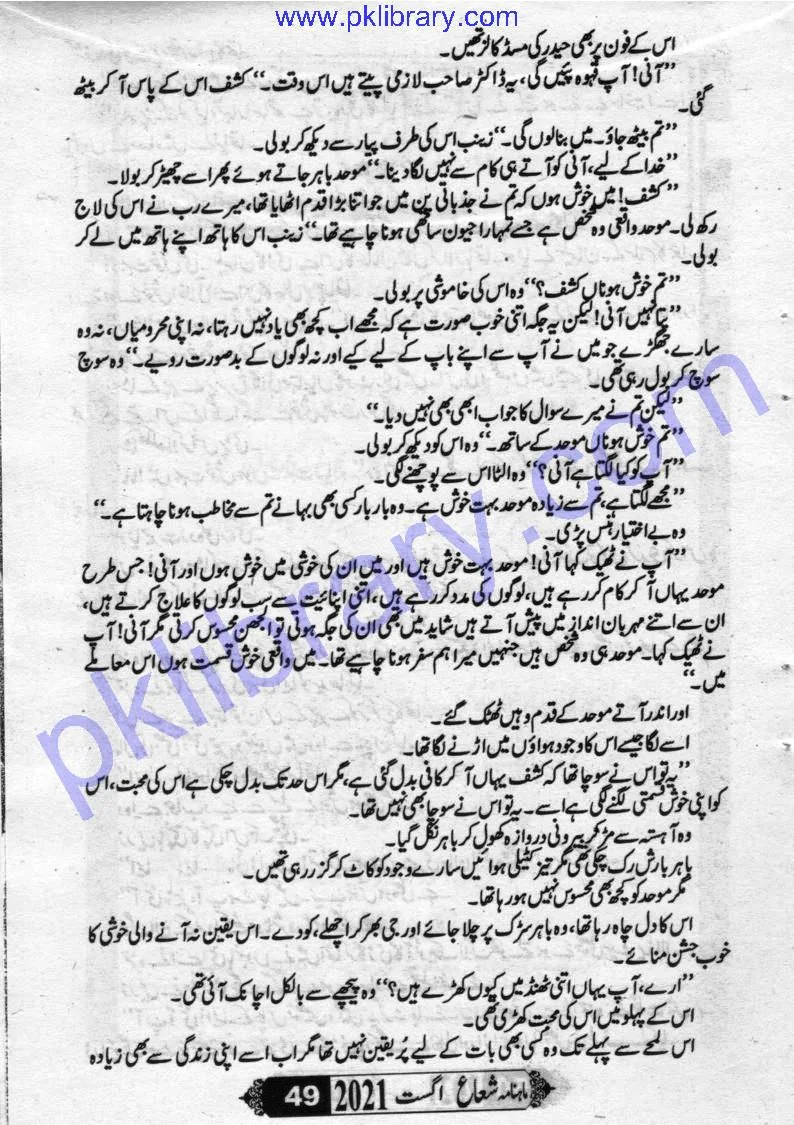 www.pklibrary.com
اس کے فون پر بھی حیدر کی مسڈ کالز تھیں۔
’’آنی! آپ قہوہ پئیں گی، یہ ڈاکٹر صاحب لازمی پیتے ہیں اس وقت۔‘‘ کشف اس کے پاس آ کر بیٹھ
گئی۔
’’تم بیٹھ جاؤ۔ میں بنا لوں گی۔‘‘ زینب اس کی طرف پیار سے دیکھ کر بولی۔
’’خدا کے لیے، آنی کو آتے ہی کام سے نہیں لگا دینا۔‘‘ موحد باہر جاتے ہوئے پھر اسے چھیڑ کر بولا۔
’’کشف! میں خوش ہوں کہ تم نے جذباتی پن میں جو اتنا بڑا قدم اٹھایا تھا، میرے رب نے اس کی لاج
رکھ لی۔ موحد واقعی وہ شخص ہے جسے تمہارا جیون ساتھی ہونا چاہیے تھا۔‘‘ زینب اس کا ہاتھ اپنے ہاتھ میں لے کر
بولی۔
’’تم خوش ہو ناں کشف؟‘‘ وہ اس کی خاموشی پر بولی۔
’’پتا نہیں آنی! لیکن یہ جگہ اتنی خوب صورت ہے کہ مجھے اب کچھ بھی یاد نہیں رہتا، نہ اپنی محرومیاں، نہ وہ
سارے جھگڑے جو میں نے آپ سے اپنے باپ کے لیے کیے اور نہ لوگوں کے بدصورت رویے۔‘‘ وہ سوچ
سوچ کر بول رہی تھی۔
’’لیکن تم نے میرے سوال کا جواب ابھی بھی نہیں دیا۔‘‘
’’تم خوش ہو ناں موحد کے ساتھ۔‘‘ وہ اس کو دیکھ کر بولی۔
’’آپ کو کیا لگتا ہے آنی؟‘‘ وہ الٹا اس سے پوچھنے لگی۔
’’مجھے لگتا ہے، تم سے زیادہ موحد بہت خوش ہے۔ وہ بار بار کسی بھی بہانے تم سے مخاطب ہونا چاہتا ہے۔‘‘
وہ بے اختیار ہنس پڑی۔
’’آپ نے ٹھیک کہا آنی! موحد بہت خوش ہیں اور میں ان کی خوشی میں خوش ہوں اور آنی! جس طرح
موحد یہاں آ کر کام کر رہے ہیں، لوگوں کی مدد کر رہے ہیں، اتنی اپنائیت سے سب لوگوں کا علاج کرتے ہیں،
ان سے اتنے مہربان انداز میں پیش آتے ہیں شاید میں بھی ان کی جگہ ہوتی تو الجھن محسوس کرتی مگر آنی! آپ
نے ٹھیک کہا۔ موحد ہی وہ شخص ہیں جنہیں میرا ہم سفر ہونا چاہیے تھا۔ میں واقعی خوش قسمت ہوں اس معاملے
میں۔‘‘
اور اندر آتے موحد کے قدم وہیں ٹھٹک گئے۔
اسے لگا جیسے اس کا وجود ہواؤں میں اڑنے لگا تھا۔
’’یہ تو اس نے سوچا تھا کہ کشف یہاں آ کر کافی بدل گئی ہے، مگر اس حد تک بدل چکی ہے اس کی محبت، اس
کو اپنی خوش قسمتی لگنے لگی ہے اسے۔ یہ تو اس نے سوچا بھی نہیں تھا۔
وہ آہستہ سے مڑ کر بیرونی دروازہ کھول کر باہر نکل گیا۔
باہر بارش رک چکی تھی مگر تیز کٹیلی ہوائیں سارے وجود کو کاٹ کر گزر رہی تھیں۔
مگر موحد کو کچھ بھی محسوس نہیں ہو رہا تھا۔
اس کا دل چاہ رہا تھا، وہ باہر سڑک پر چلا جائے اور جی بھر کر اچھلے، کودے۔ اس یقین نہ آنے والی خوشی کا
خوب جشن منائے۔
’’ارے، آپ یہاں اتنی ٹھنڈ میں کیوں کھڑے ہیں؟‘‘ وہ پیچھے سے بالکل اچانک آئی تھی۔
اس کے پہلو میں اس کی محبت کھڑی تھی۔
اس لمحے سے پہلے تک وہ کسی بھی بات کے لیے پُر یقین نہیں تھا مگر اب اسے اپنی زندگی سے بھی زیادہ
ماہنامہ شعاع اگست 2021 49
pklibrary.com